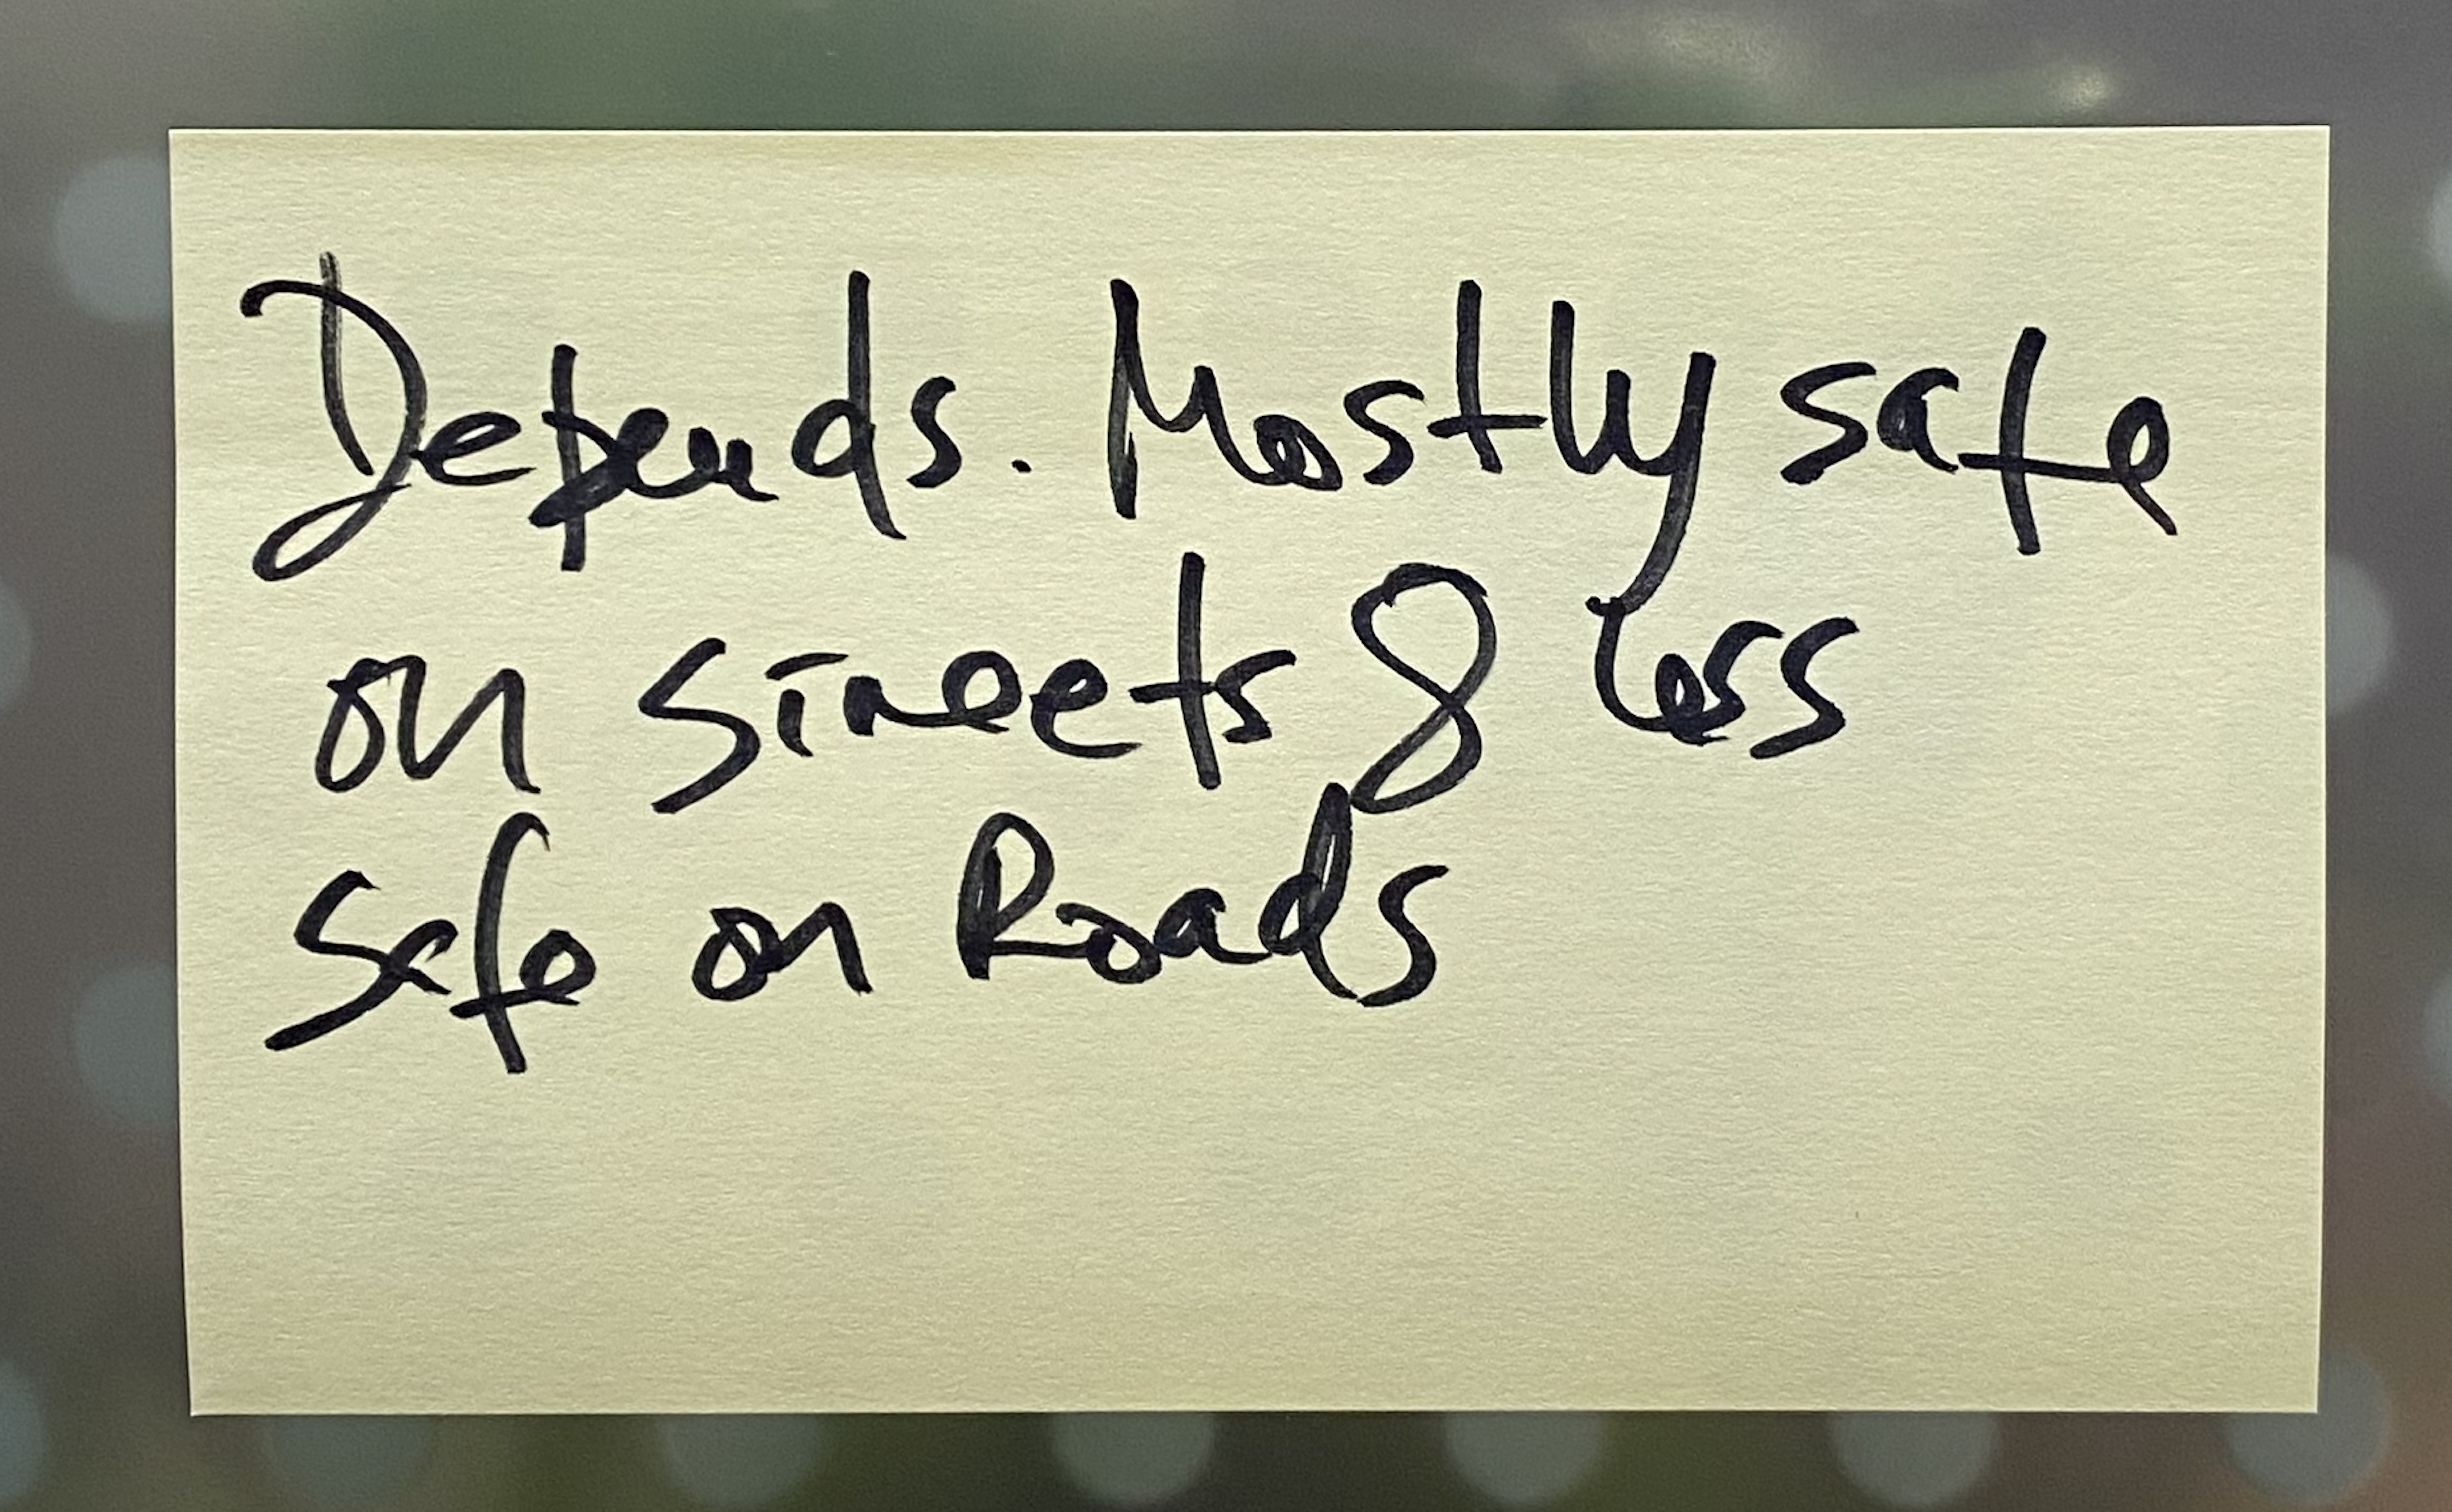 Depends. Mostly safe
on streets & less
safe on Roads